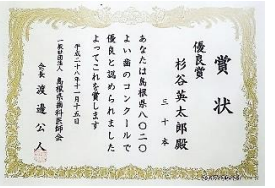 賞状
優良賞
三十本
杉谷英太郎殿
あなたは島根県8020
よい歯のコンクールで
優良と認められました
よってこれを賞します
平成二十八年十一月十五日
一般社団法人 島根県歯科医師会
会長 渡邊公人